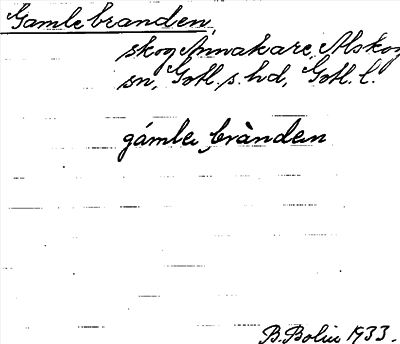 Gamlebranden,
skog Annakare, Alskog
sn, Gotl. s. hd, Gotl. l.
gámle brànden
B. Bolin 1933.